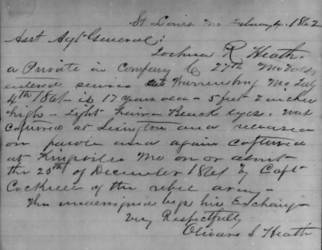 St Louis Mo February 1862
Asst Adjt General:
Joshua R Heath
a Private in Company C 27th Mo
entered service at Warrensburg Mo July
4th 1861 is 17 years old - 5 feet 2 inches
high - light hair Black eyes. was
captured at Lexington and released
on parole and again captured
at Knobville Mo on or about
the 20th of December 1861 by Capt
Cockrell of the rebel army -
The undersigned begs his Exchange
Very Respectfully
Oliver S Heath